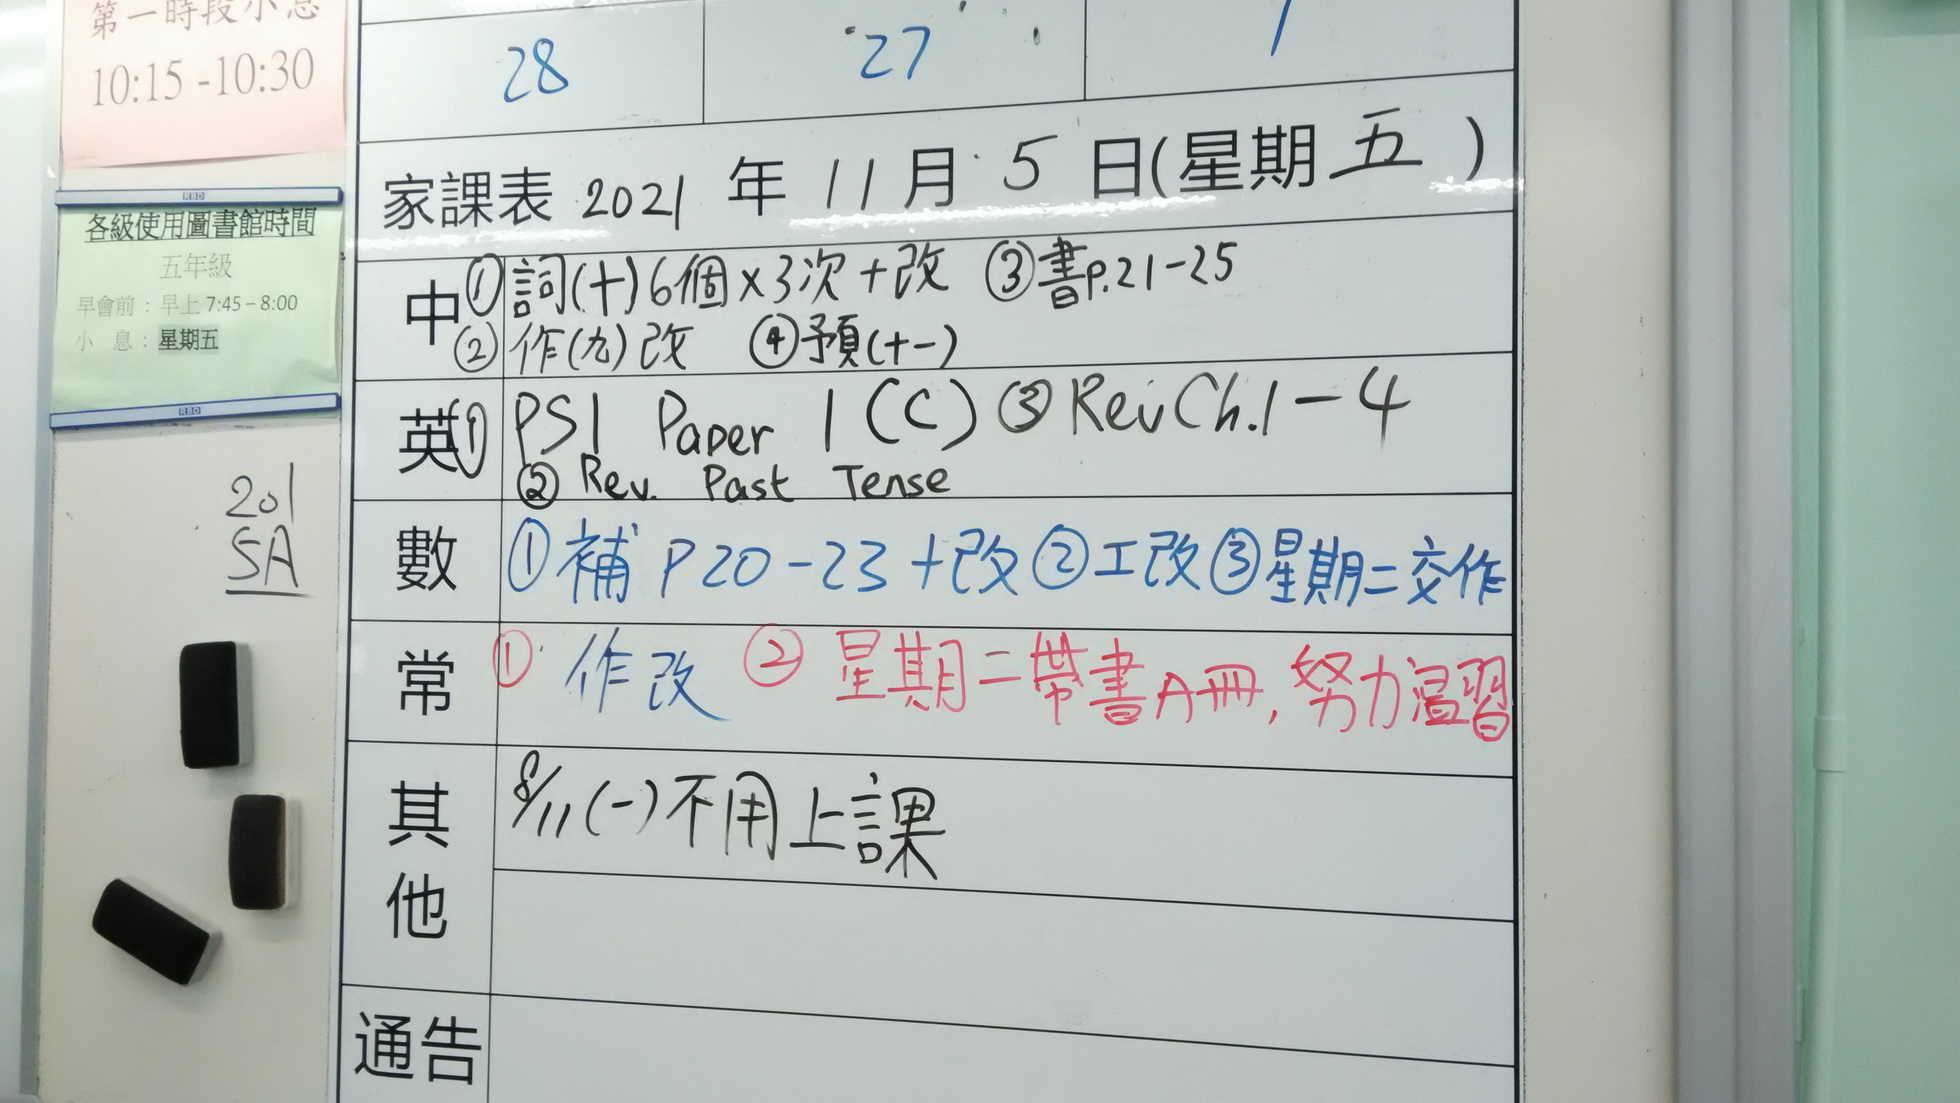 第一時段小息
10:15 -10:30
28
27
1
家課表 2021 年 11 月 5 日(星期五)
RBD
各級使用圖書館時間
五年級
早會前 : 早上 7:45 – 8:00
小 息 : 星期五
RBD
中 ① 詞(十)6個×3次+改 ③書p.21-25
② 作(九)改 ④預(十一)
英 ① PS1 Paper 1 (C) ③ Rev Ch.1-4
② Rev. Past Tense
201
5A
數 ① 補 P20-23 +改 ②工改 ③星期二交作
常 ① 作改 ② 星期二帶書A冊, 努力溫習
其他 8/11(一)不用上課
通告